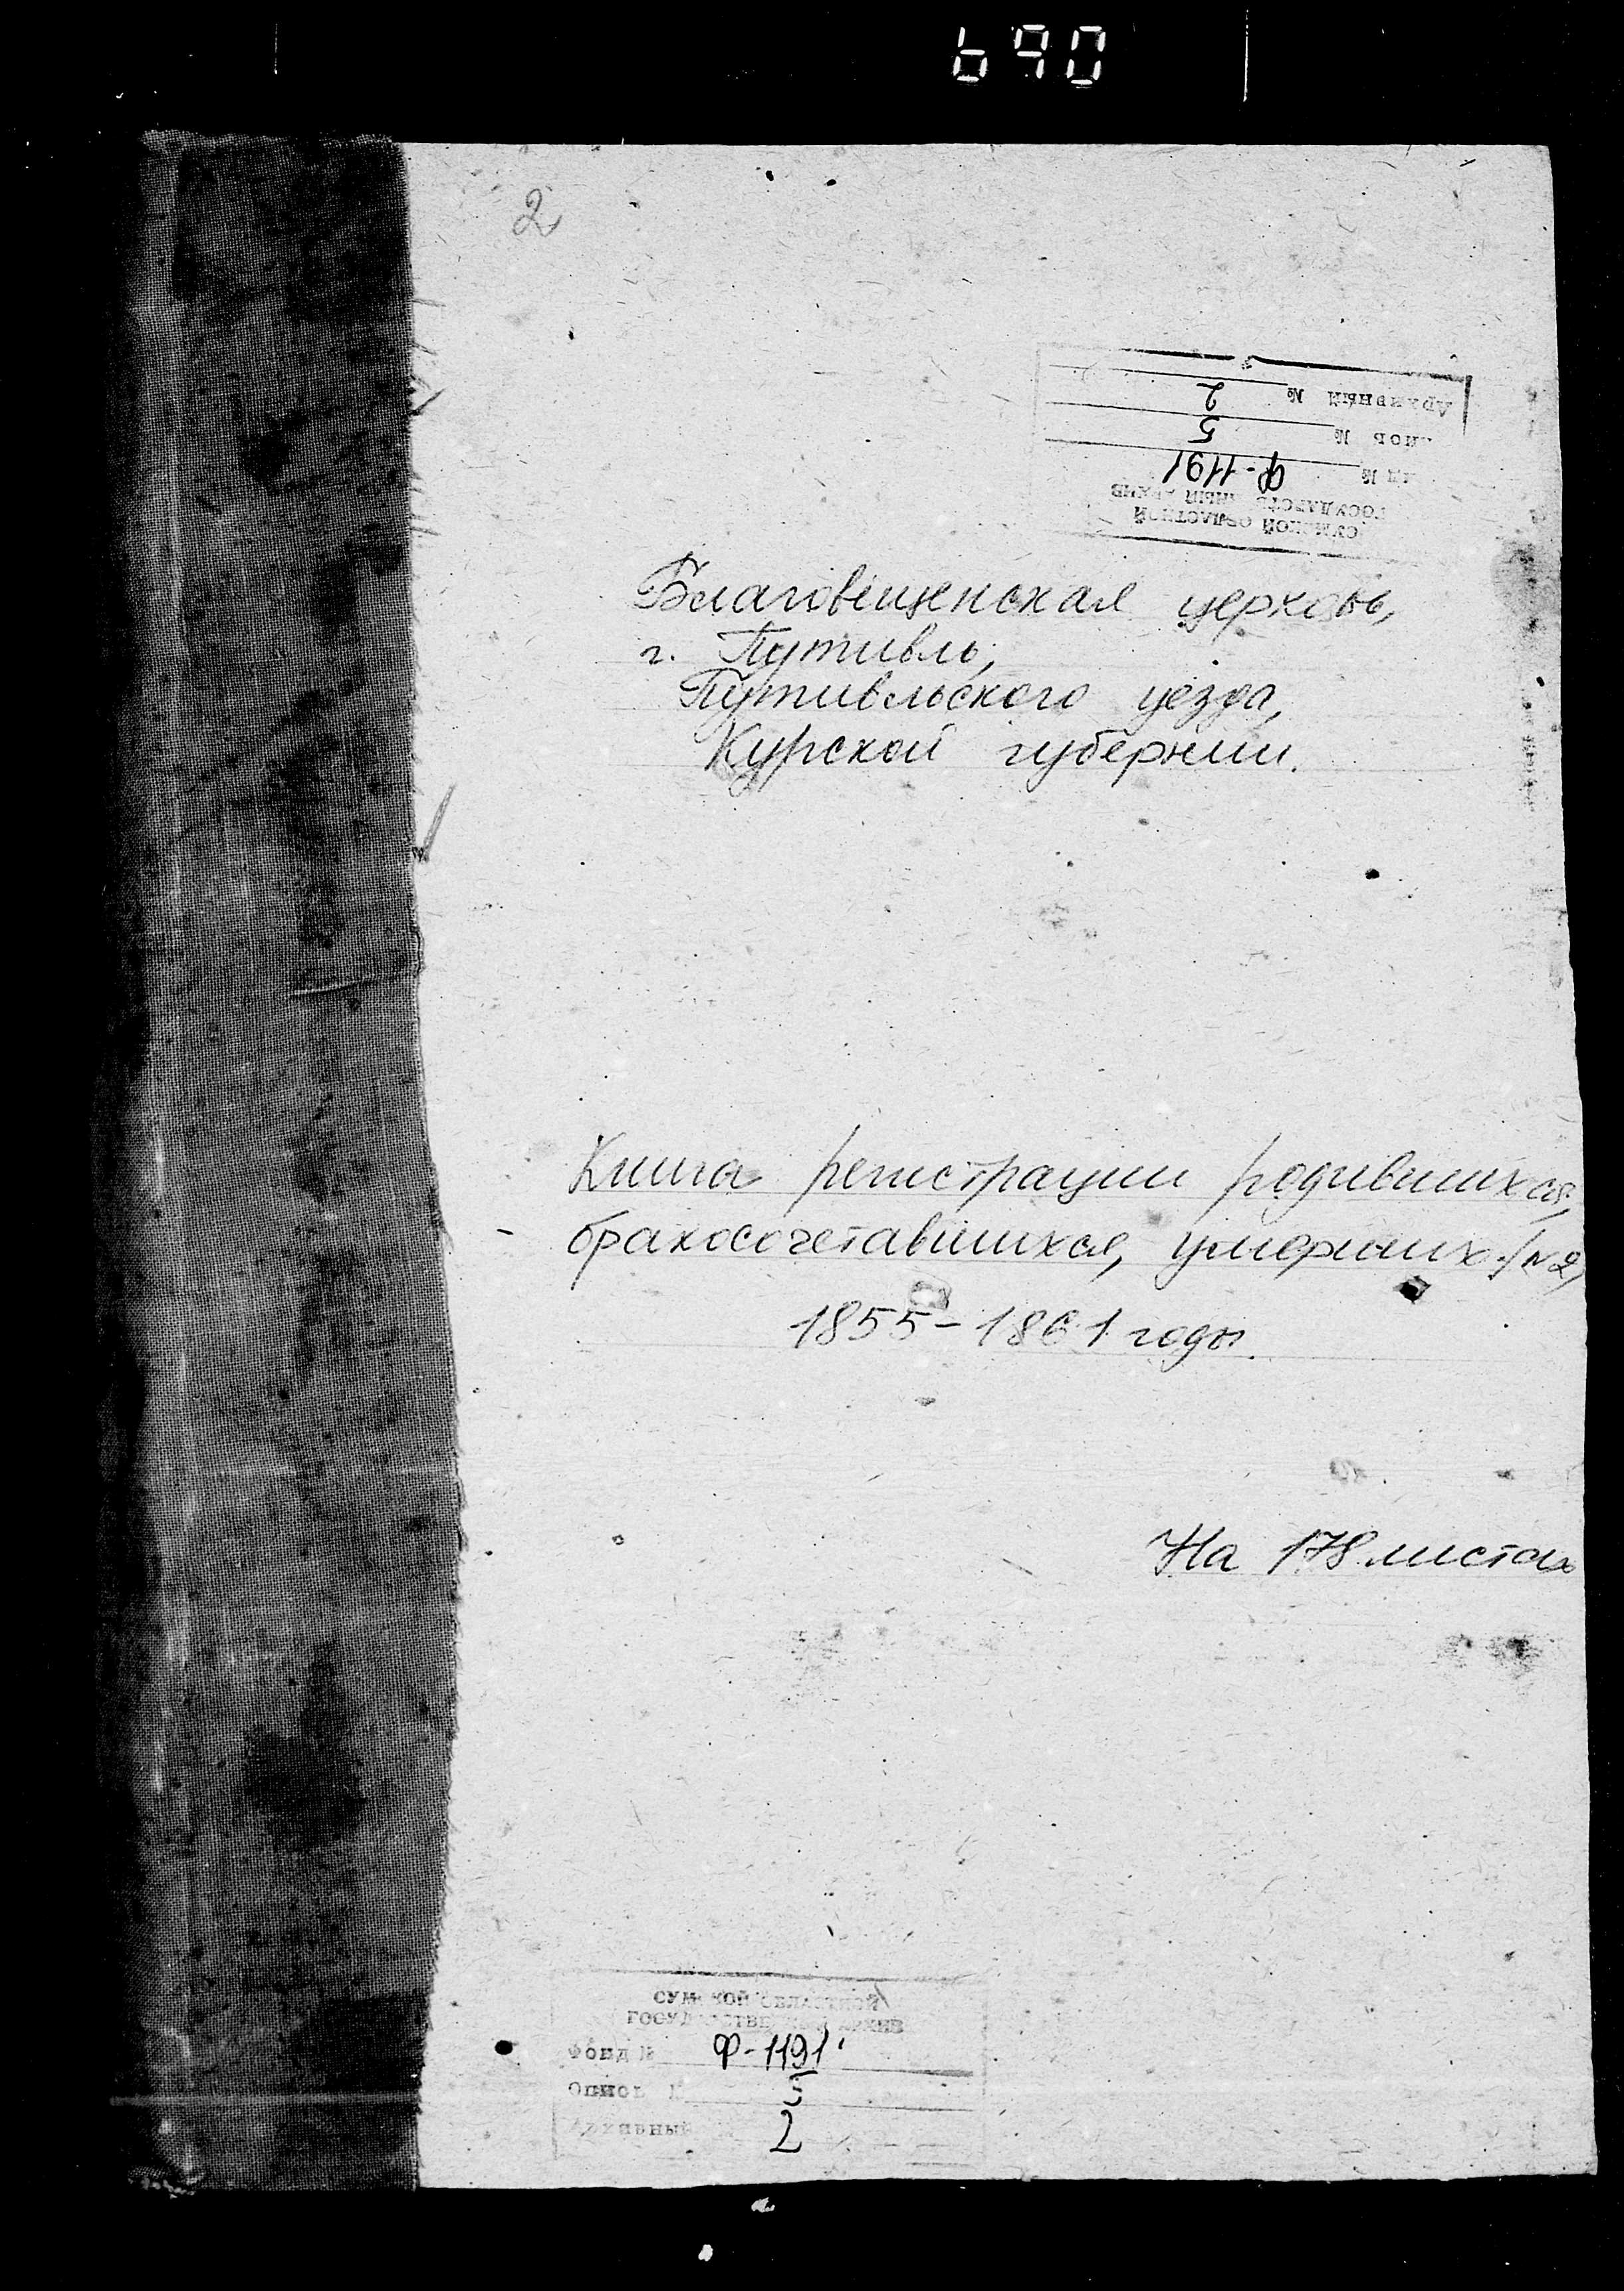 690
2
Архивный № 2
№ 5
№ Ф-1191
СУМСКОЙ ОБЛАСТНОЙ
ГОСУДАРСТВЕННЫЙ АРХИВ
Благовещенская церковь,
г. Путивль,
Путивльского уезда,
Курской губернии.
Книга регистрации родившихся,
бракосочетавшихся, умерших (№2)
1855-1861 годы.
На 178 листах
СУМСКОЙ ОБЛАСТНОЙ
ГОСУДАРСТВЕННЫЙ АРХИВ
Фонд № Ф-1191
Опись № 5
Архивный 2